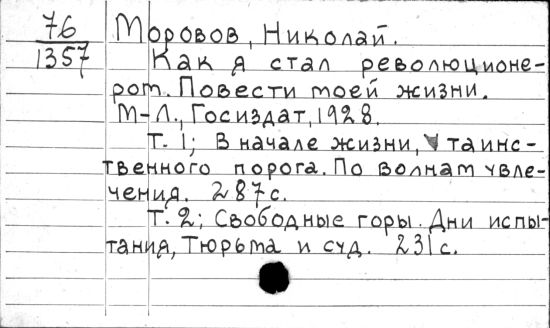 76
1357
Моровов, Николай.
Как я стал революционе-
ром. Повести моей жизни.
М-Л., Госиздат, 1928.
Т. 1; В начале жизни, У таинс-
твенного порога. По волнам увле-
чения. 287 с.
Т. 2; Свободные горы. Дни испы-
тания, Тюрьма и суд. 231 с.